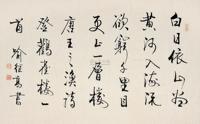 白日依山尽
黄河入海流
欲窮千里目
更上一層樓
唐王之渙詩
登鸛雀樓一
首 喻继高書